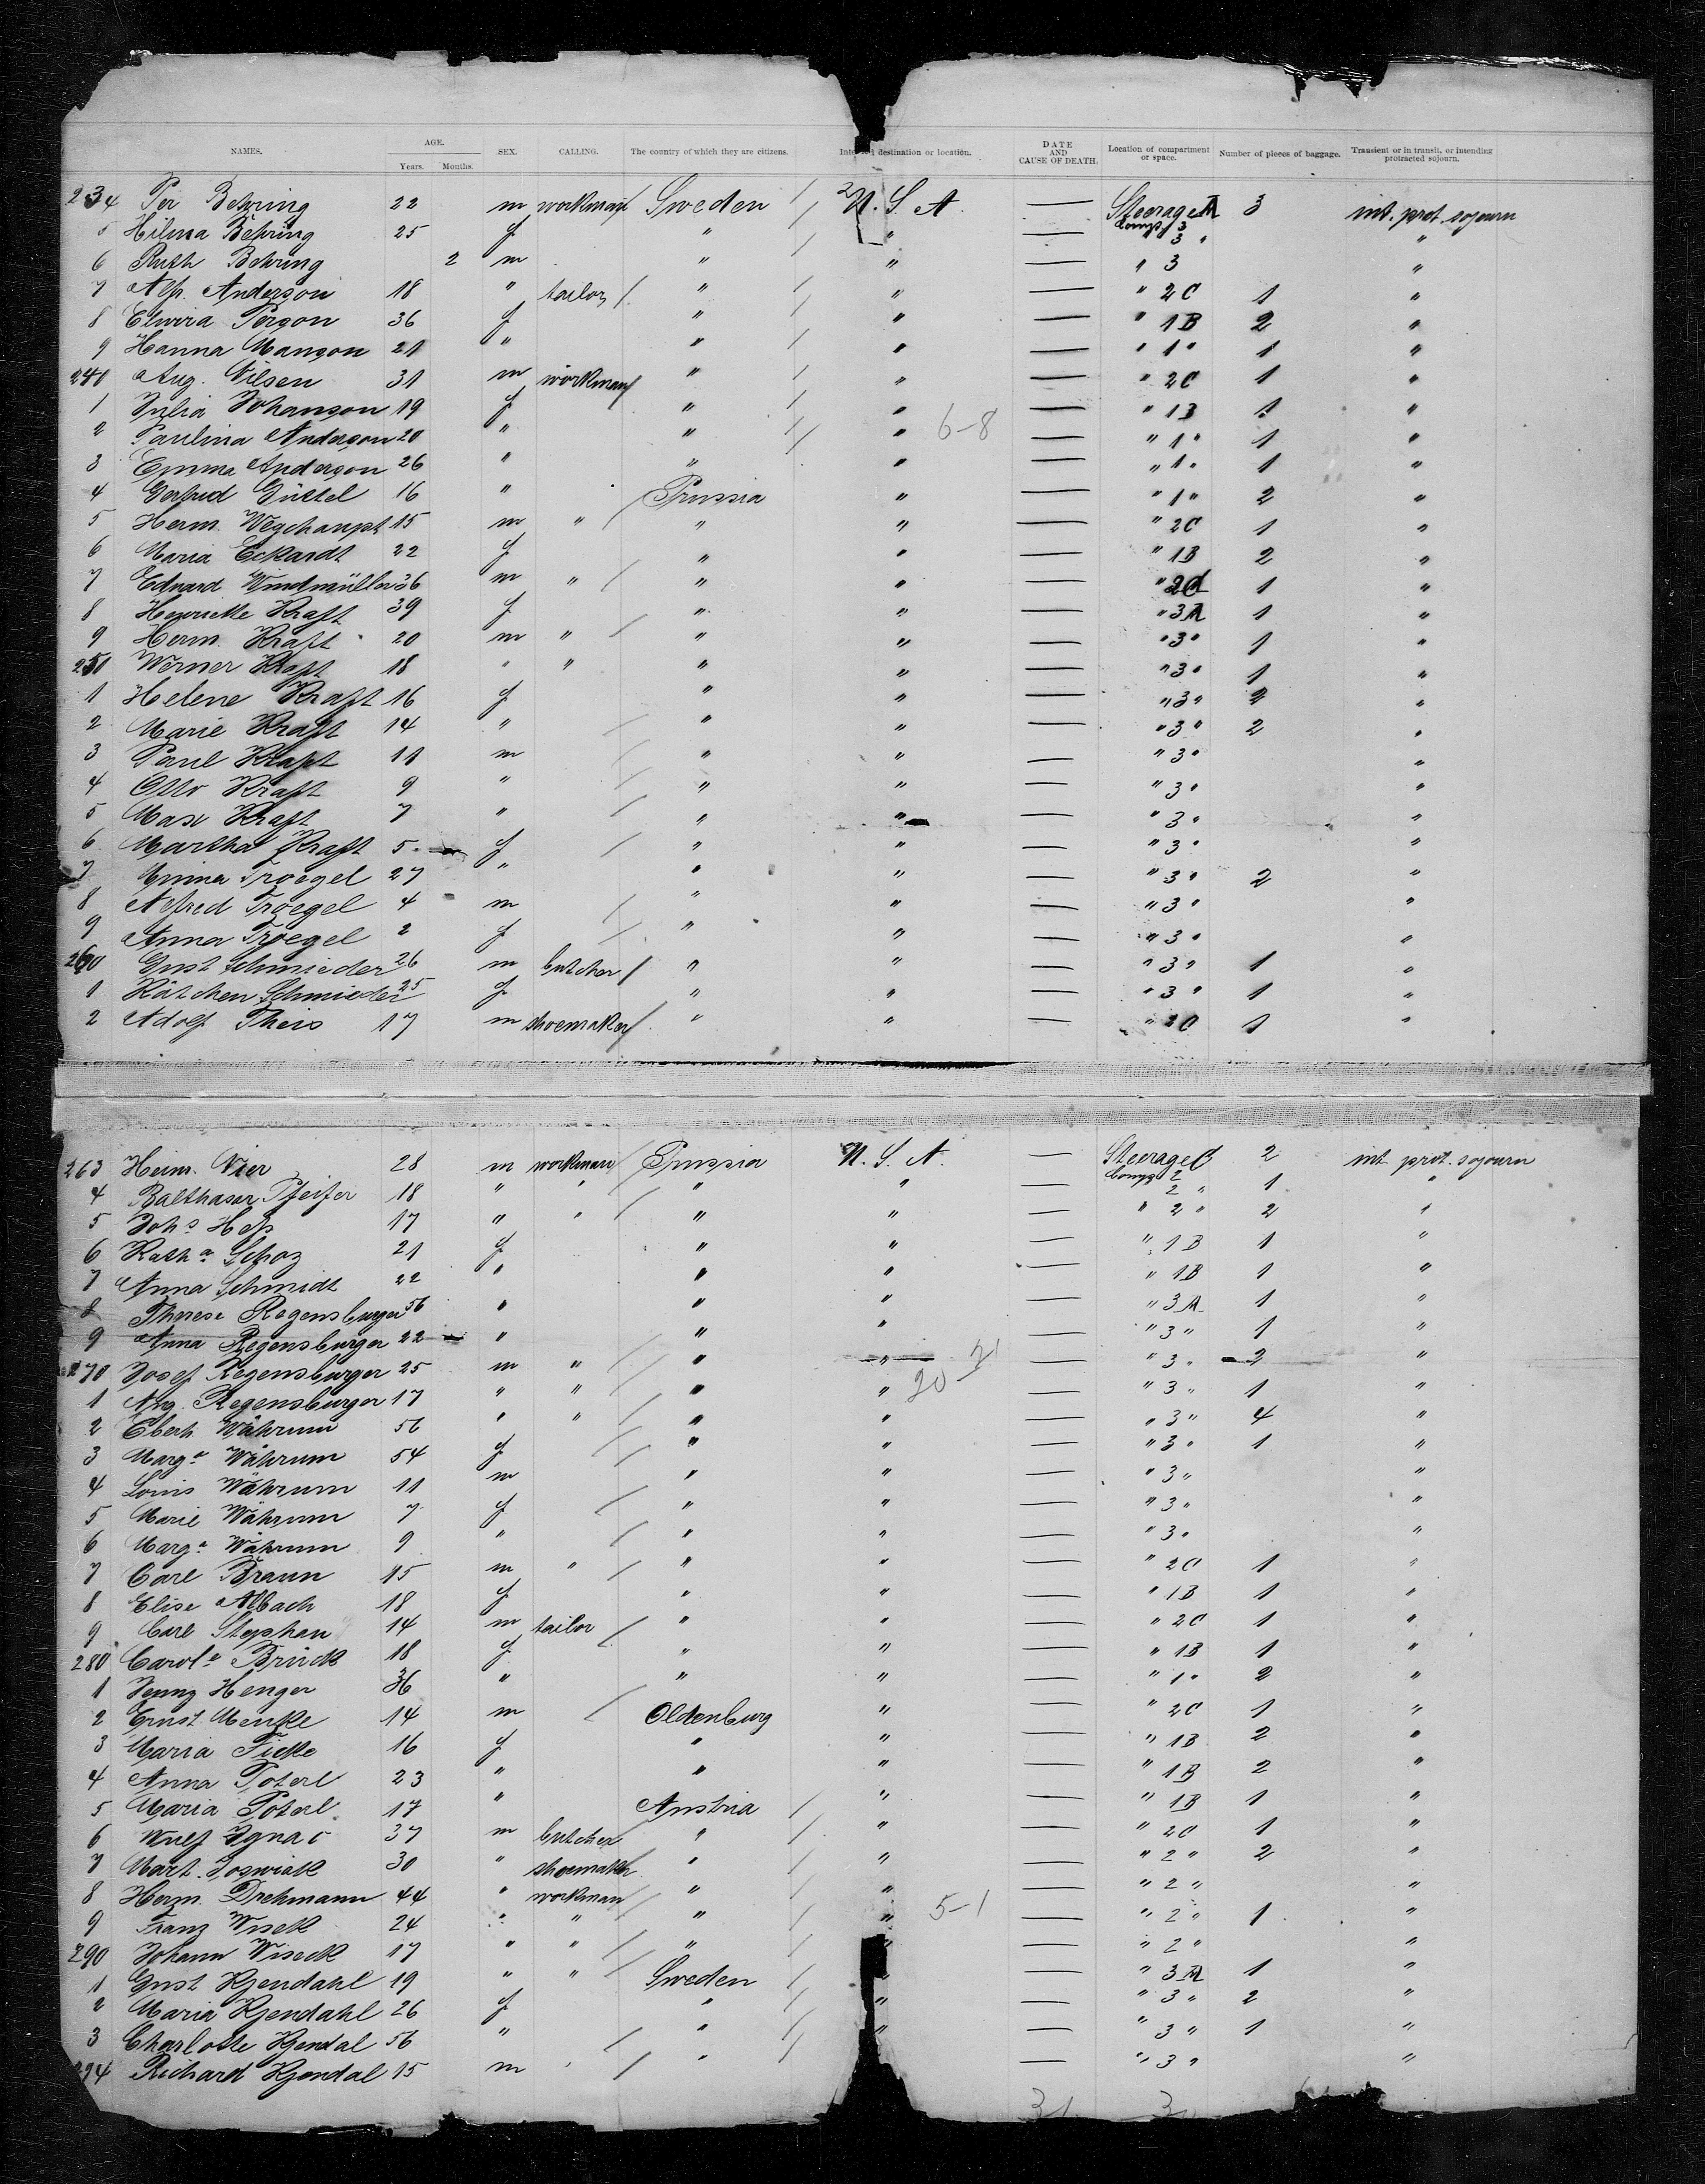 NAMES. AGE. Years. Months. SEX. CALLING. The country of which they are citizens. Intended destination or location. DATE AND CAUSE OF DEATH. Location of compartment or space. Number of pieces of baggage. Transient or in transit, or intending protracted sojourn.
234 Per Behring 22 m workman Sweden U. S. A. — Steerage A Comp. 3 3 int. prot. sojourn
5 Hilma Behring 25 f " " — " 3 " "
6 Ruth Behring 2 m " " — " 3 "
7 Alf. Anderson 18 " tailor " " — " 2C 1 "
8 Elwira Person 36 f " " — " 1B 2 "
9 Hanna Manson 21 " " " — " 1 " 1 "
240 Aug. Nilsen 31 m workman " " — " 2C 1 "
1 Julia Johanson 19 f " " — " 1B 1 "
2 Paulina Anderson 20 " " " 6-8 — " 1 " 1 "
3 Emma Anderson 26 " " " — " 1 " 1 "
4 Gertrud Güttel 16 " Prussia " — " 1 " 2 "
5 Herm. Wegehaupt 15 m " " " — " 2C 1 "
6 Maria Eckardt 22 f " " — " 1B 2 "
7 Eduard Windmüller 36 m " " " — " 2C 1 "
8 Henriette Kraft 39 f " " — " 3A 1 "
9 Herm. Kraft 20 m " " " — " 3 " 1 "
250 Werner Kraft 18 " " " " — " 3 " 1 "
1 Helene Kraft 16 f " " — " 3 " 2 "
2 Marie Kraft 14 " " " — " 3 " 2 "
3 Paul Kraft 11 m " " — " 3 " "
4 Otto Kraft 9 " " " — " 3 " "
5 Max Kraft 7 " " " — " 3 " "
6 Martha Kraft 5 f " " — " 3 " "
7 Minna Troegel 27 " " " — " 3 " 2 "
8 Alfred Troegel 4 m " " — " 3 " "
9 Anna Troegel 2 f " " — " 3 " "
260 Gust Schmieder 26 m butcher " " — " 3 " 1 "
1 Kätchen Schmieder 25 f " " — " 3 " 1 "
2 Adolf Theis 17 m shoemaker " " — " 2C 1 "
263 Heinr. Nier 28 m workman Prussia U. S. A. — Steerage C Comp. 2 2 int. prot. sojourn
4 Balthasar Pfeifer 18 " " " " — 2 " 1 "
5 Johs Hess 17 " " " " — " 2 " 2 "
6 Katha Schoz 21 f " " — " 1B 1 "
7 Anna Schmidt 22 " " " — " 1B 1 "
8 Therese Regensburger 56 " " " — " 3A 1 "
9 Anna Regensburger 22 " " " — " 3 " 1 "
270 Josef Regensburger 25 m " " " 21 — " 3 " 2 "
1 Aug. Regensburger 17 " " " " 20 — " 3 " 1 "
2 Eberh. Währum 56 " " " " — " 3 " 4 "
3 Marga Währum 54 f " " — " 3 " 1 "
4 Louis Währum 11 m " " — " 3 " "
5 Marie Währum 7 f " " — " 3 " "
6 Marga Währum 9 " " " — " 3 " "
7 Carl Braun 15 m " " " — " 2C 1 "
8 Elise Albach 18 f " " — " 1B 1 "
9 Carl Stephan 14 m tailor " " — " 2C 1 "
280 Carole Brück 18 f " " — " 1B 1 "
1 Jenny Henger 36 " " " — " 1 " 2 "
2 Ernst Menke 14 m Oldenburg " — " 2C 1 "
3 Maria Ficke 16 f " " — " 1B 2 "
4 Anna Poterl 23 " " " — " 1B 2 "
5 Maria Poterl 17 " Austria " — " 1B 1 "
6 Wulf Ignac 37 m butcher " " — " 2C 1 "
7 Mart. Joswiak 30 " shoemaker " " — " 2 " 2 "
8 Herm. Drehmann 44 " workman " " — " 2 " "
9 Franz Wisek 24 " " " " 5-1 — " 2 " 1 "
290 Johann Wiseck 17 " " " " — " 2 " "
1 Gust Kjendahl 19 " " Sweden " — " 3A 1 "
2 Maria Kjendahl 26 f " " — " 3 " 2 "
3 Charlotte Kjendal 56 " " " — " 3 " 1 "
294 Richard Kjendal 15 m " " — " 3 " "
31 3